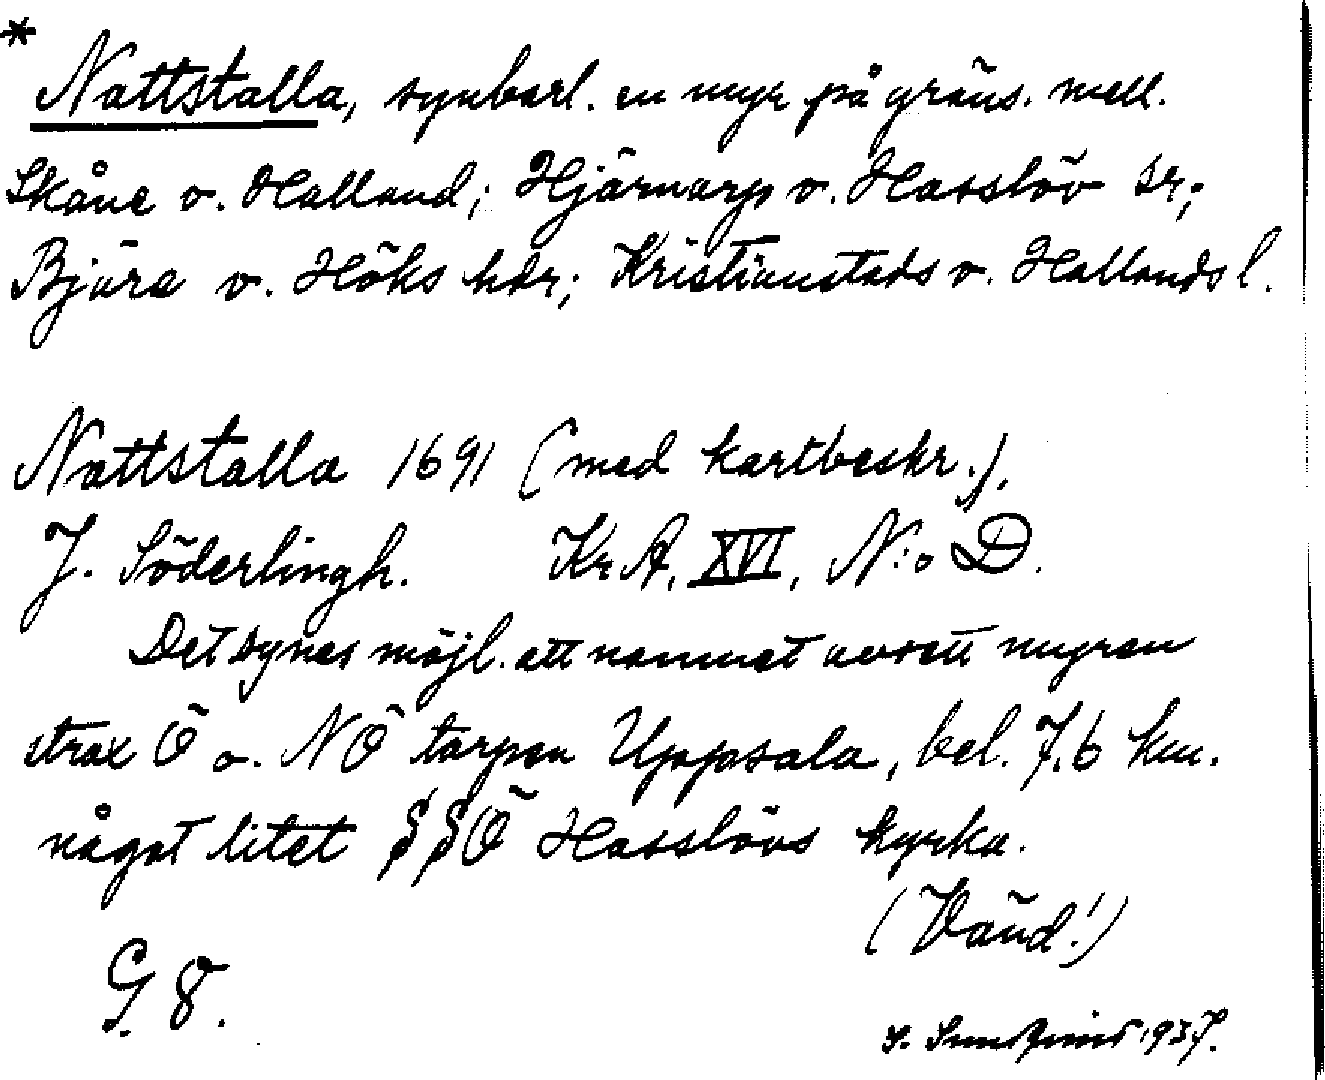 *
Nattstalla, synbarl. en myr på gräns. mell.
Skåne o. Halland; Hjärnarp o. Hasslöv sr;
Bjäre o. Höks hdr; Kristianstads o. Hallands l.
Nattstalla 1691 (med kartbeskr.),
J. Söderlingh. KrA, XVI, N:o D.
Det synes möjl. att namnet avsett myren
strax Ö o. NÖ torpen Uppsala, bel. 7,6 km.
något litet SSÖ Hasslövs kyrka.
(Vänd!)
G. 8.
1937.